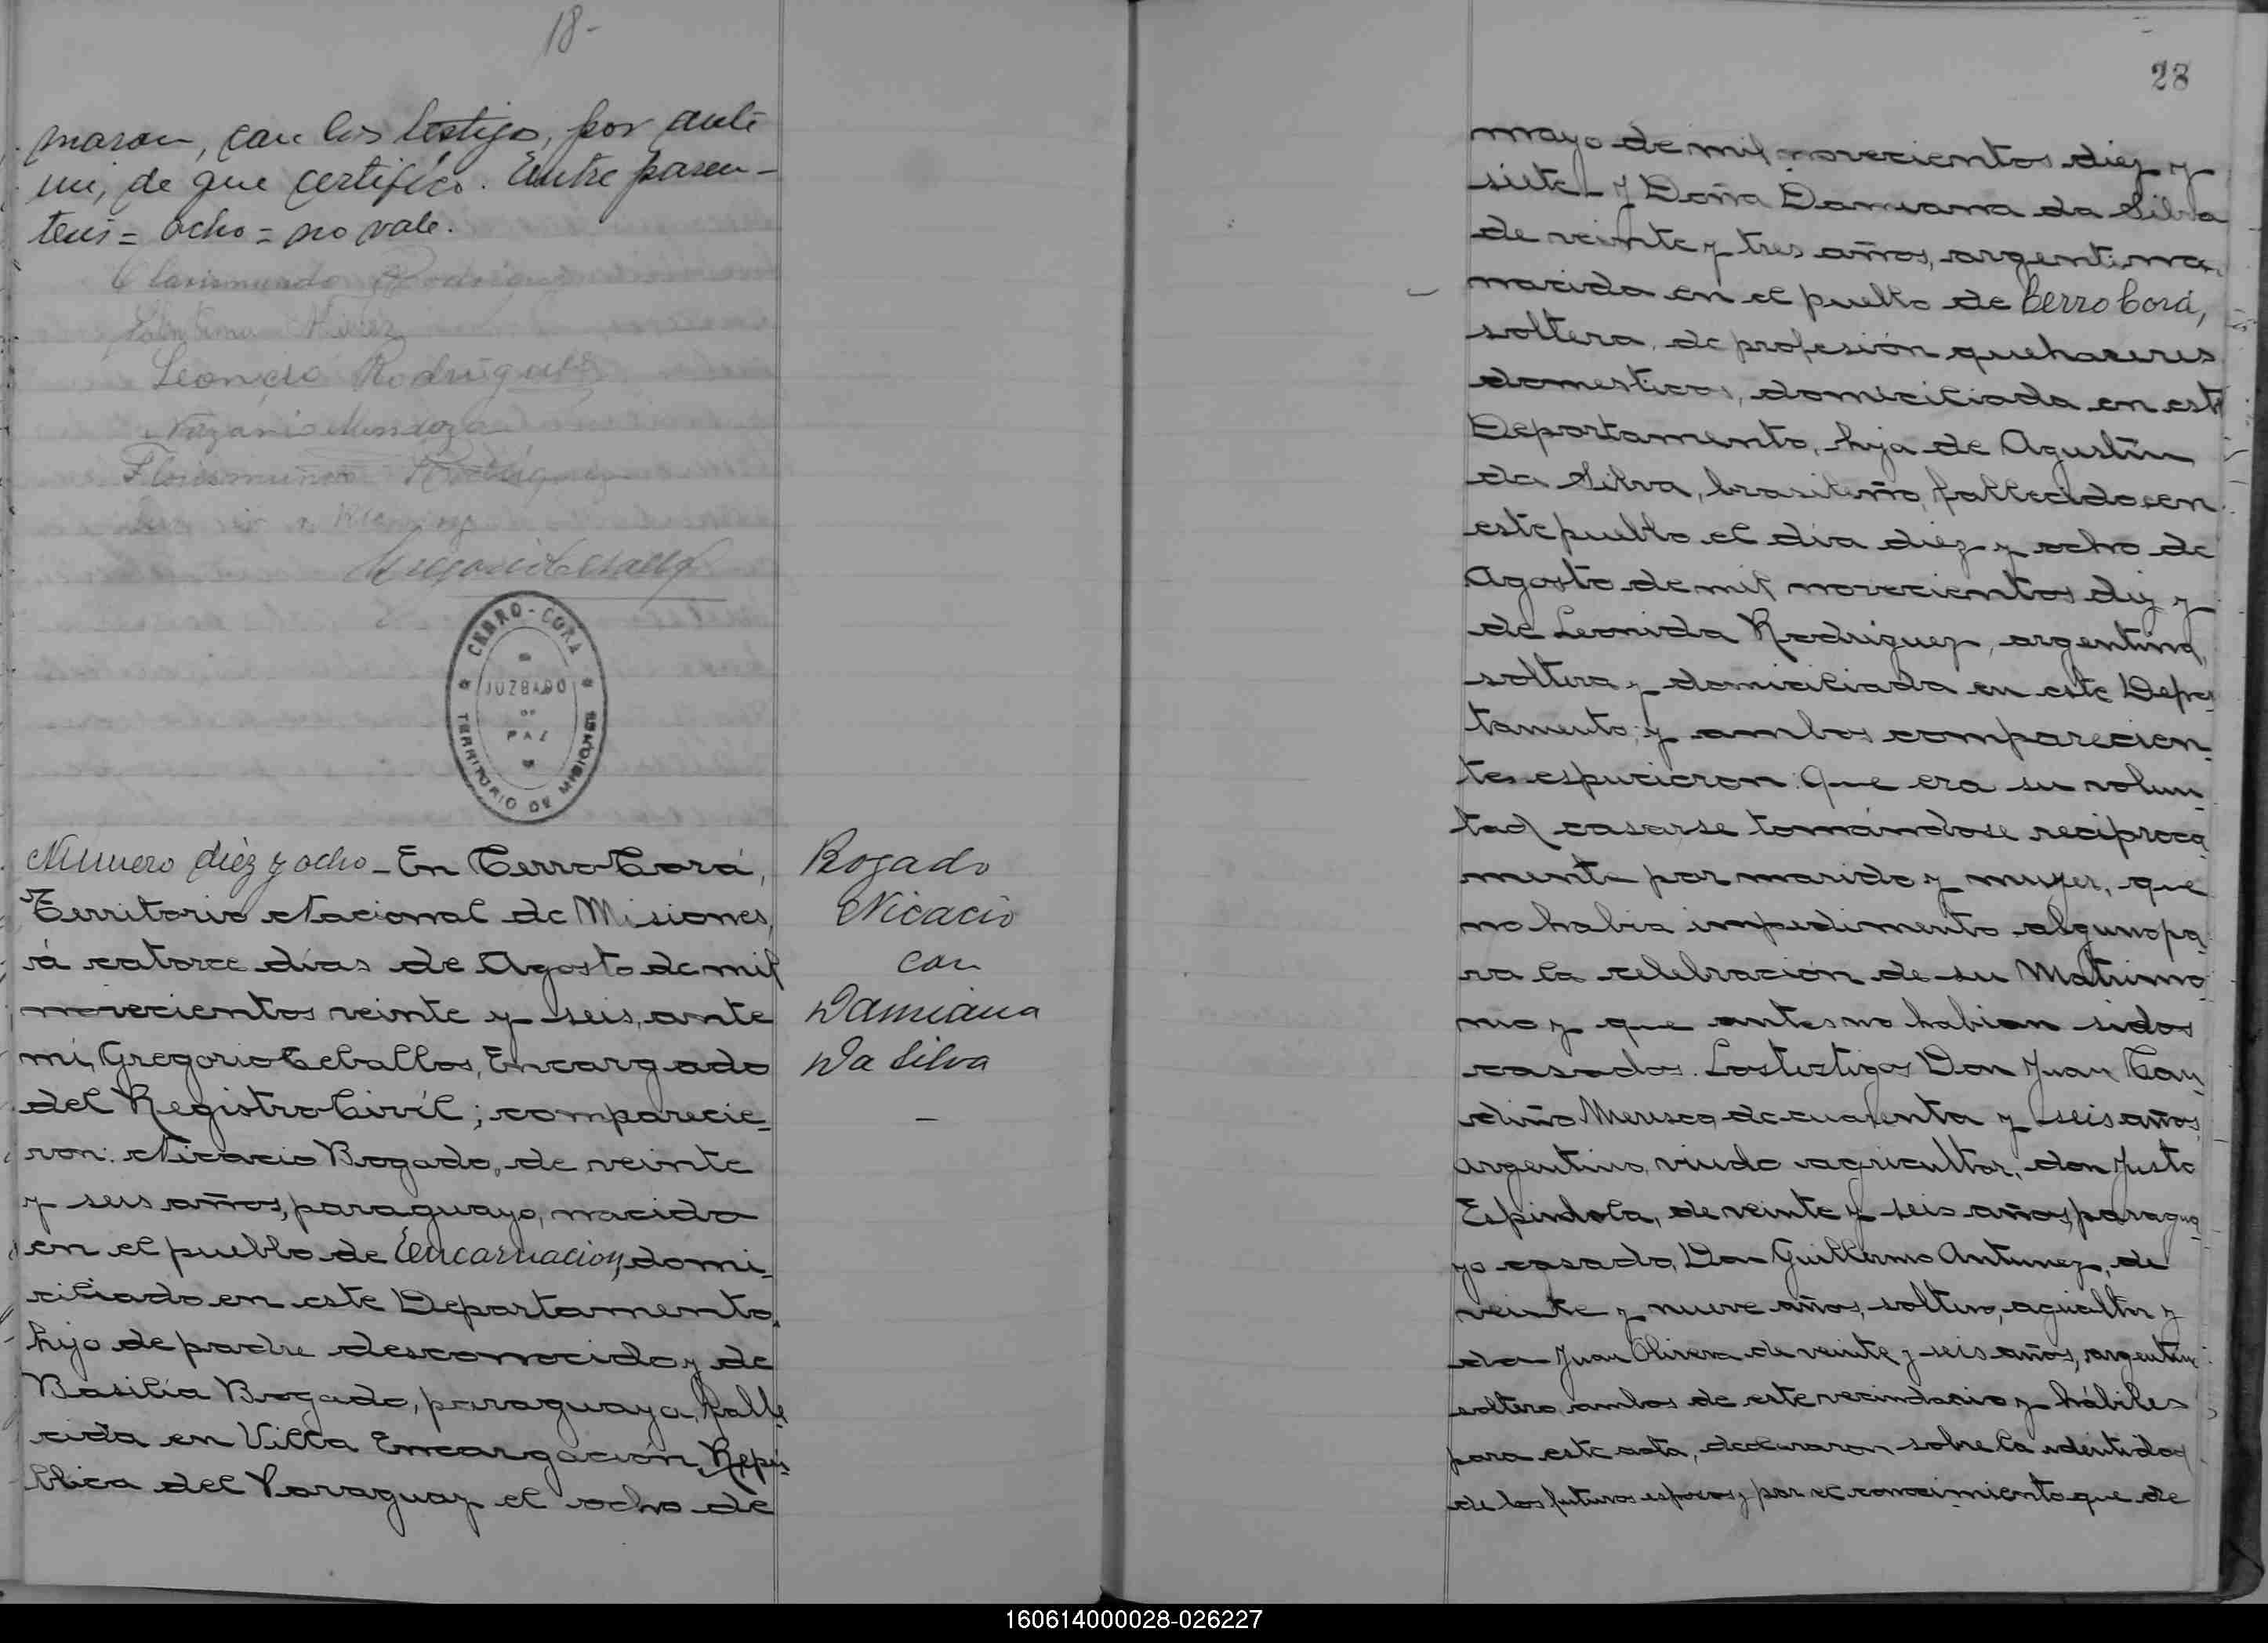 18-
maron, con los testigos, por ante
mi, de que certifico. Entre paren-
tesis = ocho = no vale.
Clarismundo Rodriguez
Leoncio Rodrigues
Nazario Mendoza
Rodriguez
Gregorio Ceballos
CERRO-CORÁ
JUZGADO
DE
PAZ
TERRITORIO DE MISIONES
Número diéz y ocho - En Cerro Corá,
Territorio Nacional de Misiones,
á catorce días de Agosto de mil
novecientos veinte y seis, ante
mí, Gregorio Ceballos, Encargado
del Registro Civíl; comparecie-
ron: Nicacio Bogado, de veinte
y seis años, paraguayo, nacido
en el pueblo de Encarnación, domi-
ciliado en este Departamento,
hijo de padre desconocido y de
Basilia Bogado, paraguaya, falle-
cida en Villa Encargación, Repú-
blica del Paraguay el ocho de
Bogado
Nicacio
con
Damiana
Da Silva
-
28
mayo de mil novecientos diez y
siete - Y Doña Damiana da Silva
de veinte y tres años, argentina,
nacida en el pueblo de Cerro Corá,
soltera, de profesión quehaceres
domesticos, domiciliada en este
Departamento, hija de Agustín
da Silva, brasileño, fallecido en
este pueblo el día diez y ocho de
Agosto de mil novecientos diez y
de Leonida Rodriguez, argentina,
soltera y domiciliada en este Depar-
tamento; y ambos comparecien-
tes espucieron: Que era su volun-
tad casarse tomándose reciproca-
mente por marido y mujer, que
no habia impedimento alguno pa-
ra la celebración de su Matrimo-
nio y que antes no habian sidos
casados. Los testigos Don Juan Can-
diño de cuarenta y seis años,
argentino, viudo agricultor, don Justo
Espindola, de veinte y seis años, paragua-
yo casado, Don Guillermo Antunez, de
veinte y nueve años, soltero, agricultor y
don Juan Olivera de veinte y seis años, argentino
soltero, ambos de este vecindario y hábiles
para este acta, declararon sobre la identidad
de los futuros esposos y por el conocimiento que de
160614000028-026227